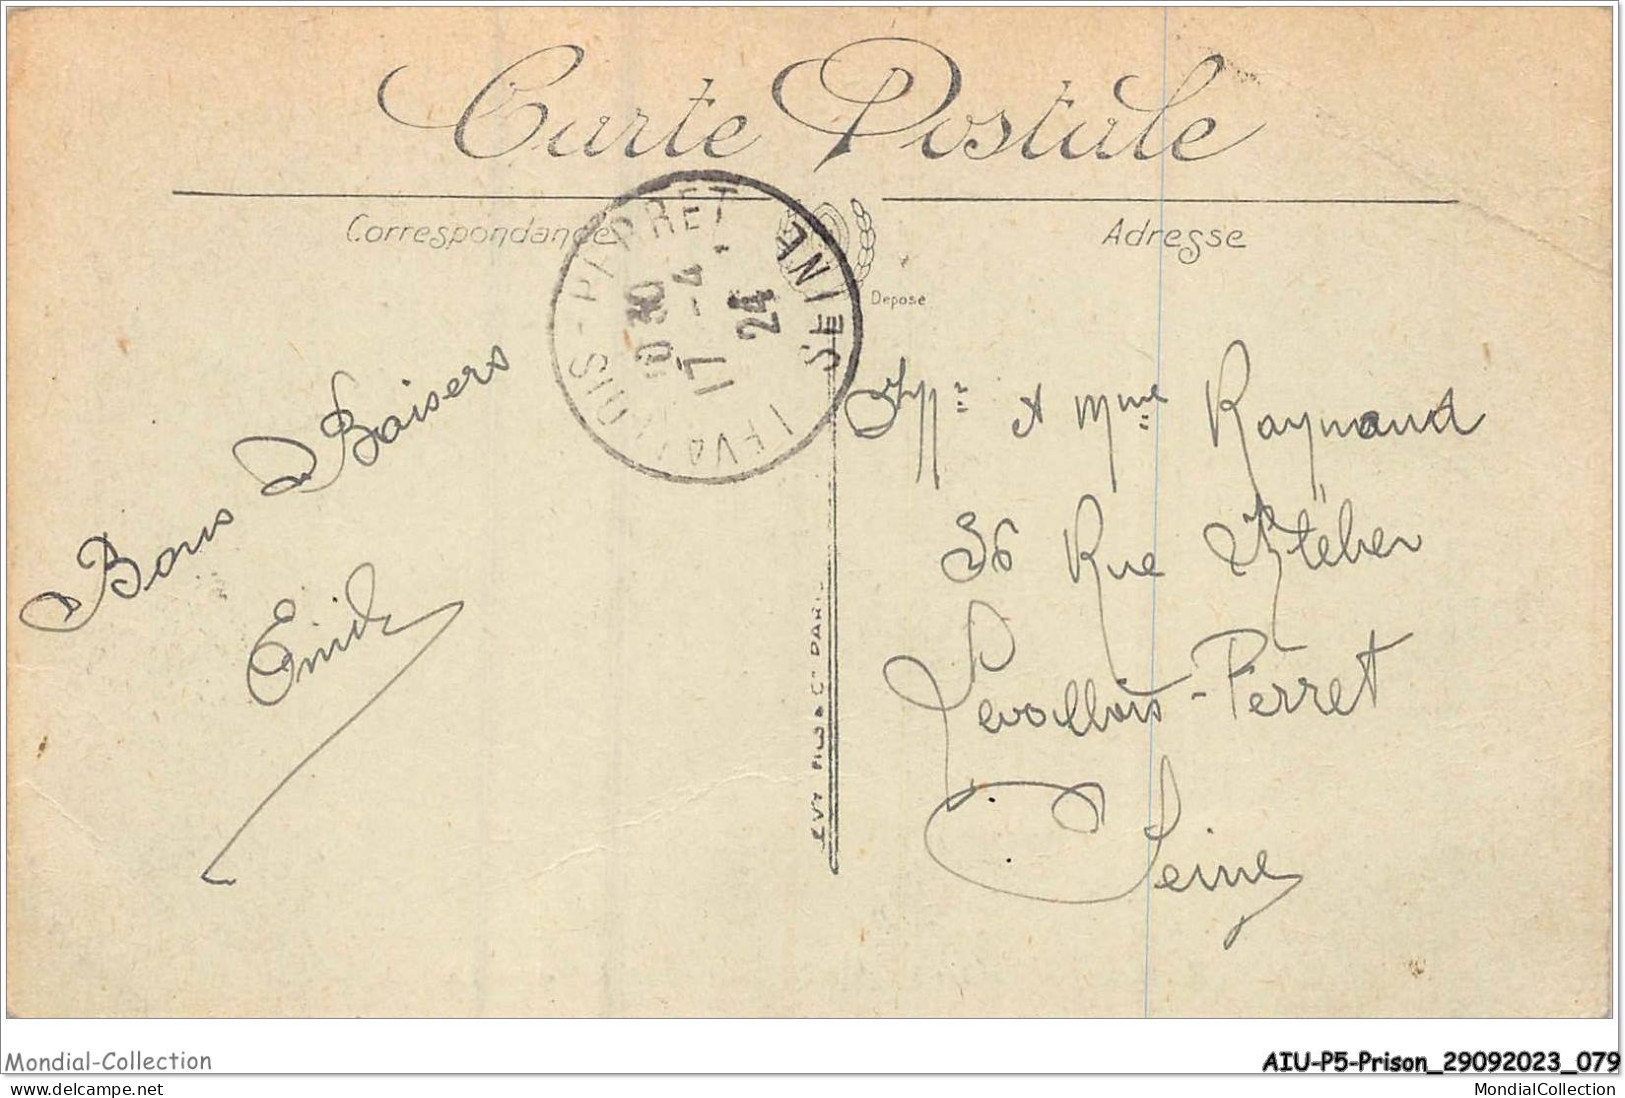 Carte Postale
Correspondance
Adresse
Déposé
LEVALLOIS-PERRET
SEINE
17 -4
24
Bons Baisers
Emile
Mr et Mme Raymond
36 Rue Kléber
Levallois-Perret
Seine
FILS & Cie PARIS
Mondial-Collection
AIU-P5-Prison_29092023_079
www.delcampe.net
MondialCollection